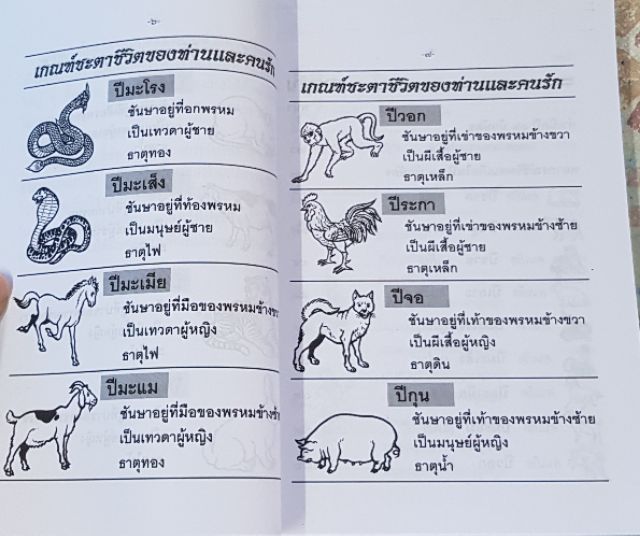 -๖-
เกณฑ์ชะตาชีวิตของท่านและคนรัก
ปีมะโรง
ชันษาอยู่ที่อกพรหม
เป็นเทวดาผู้ชาย
ธาตุทอง
ปีมะเส็ง
ชันษาอยู่ที่ท้องพรหม
เป็นมนุษย์ผู้ชาย
ธาตุไฟ
ปีมะเมีย
ชันษาอยู่ที่มือของพรหมข้างขวา
เป็นเทวดาผู้หญิง
ธาตุไฟ
ปีมะแม
ชันษาอยู่ที่มือของพรหมข้าง
เป็นเทวดาผู้หญิง
ธาตุทอง
-๗-
เกณฑ์ชะตาชีวิตของท่านและคนรัก
ปีวอก
ชันษาอยู่ที่เข่าของพรหมข้างขวา
เป็นผีเสื้อผู้ชาย
ธาตุเหล็ก
ปีระกา
ชันษาอยู่ที่เข่าของพรหมข้างซ้าย
เป็นผีเสื้อผู้ชาย
ธาตุเหล็ก
ปีจอ
ชันษาอยู่ที่เท้าของพรหมข้างขวา
เป็นผีเสื้อผู้หญิง
ธาตุดิน
ปีกุน
ชันษาอยู่ที่เท้าของพรหมข้างซ้าย
เป็นมนุษย์ผู้หญิง
ธาตุน้ำ